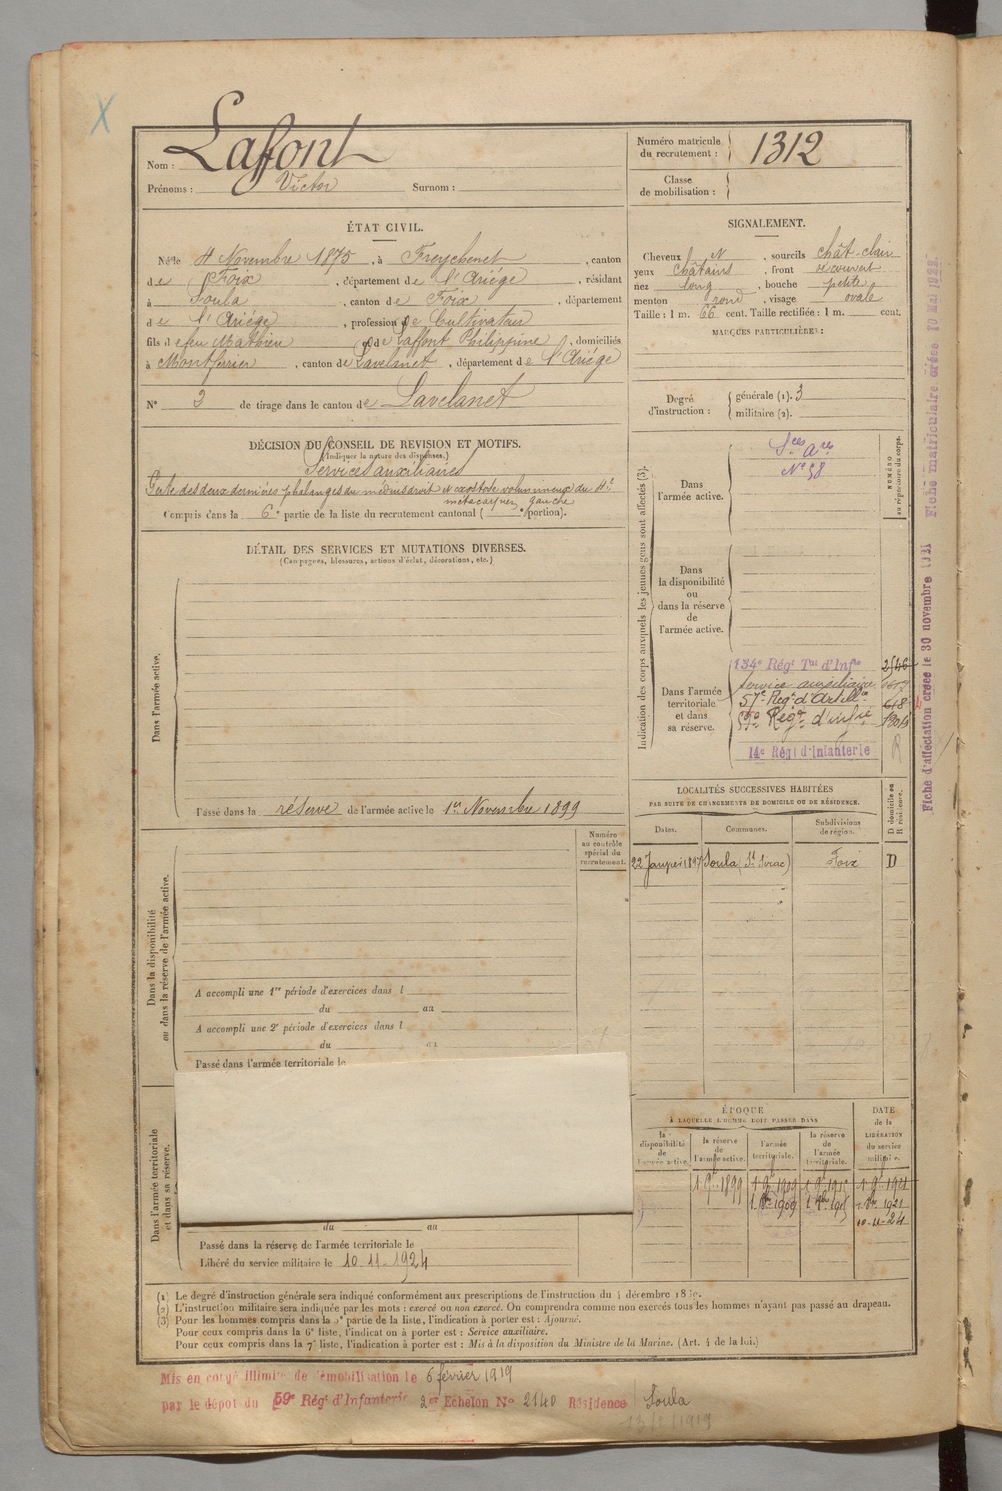 X
Nom : Laffont
Prénoms : Victor Surnom :
Numéro matricule du recrutement : 1312
Classe de mobilisation :
ÉTAT CIVIL.
Né le 4 Novembre 1875, à Freychenet, canton
de Foix, département de l'Ariége, résidant
à Soula, canton de Foix, département
de l'Ariége, profession de Cultivateur
fils de feu Mathieu et de Laffont Philippine, domiciliés
à Montferrier, canton de Lavelanet, département de l'Ariége
N° 2 de tirage dans le canton de Lavelanet
SIGNALEMENT.
Cheveux N, sourcils chât-clair
yeux châtains, front découvert
nez long, bouche petite
menton rond, visage ovale
Taille : 1 m. 66 cent. Taille rectifiée : 1 m. cent.
MARQUES PARTICULIÈRES :
Degré d'instruction : générale (1). 3
militaire (2).
DÉCISION DU CONSEIL DE REVISION ET MOTIFS.
(Indiquer la nature des dispenses.)
Services auxiliaires
Perte des deux dernières phalanges du médius droit et exostose volumineuse du 4e
métacarpien gauche
Compris dans la 6e partie de la liste du recrutement cantonal ( e portion).
DÉTAIL DES SERVICES ET MUTATIONS DIVERSES.
(Campagnes, blessures, actions d'éclat, décorations, etc.)
Dans l'armée active.
Passé dans la réserve de l'armée active le 1er Novembre 1899
Indication des corps auxquels les jeunes gens sont affectés (3).
NUMÉRO au répertoire du corps.
Dans l'armée active.
Sces Ares
N° 58
Dans la disponibilité ou dans la réserve de l'armée active.
Dans l'armée territoriale et dans sa réserve.
134e Régt Tal d'Infie
Service auxiliaire
57e Régt d'Artillie
59e Régt d'infie
14e Régt d'Infanterie
Fiche d'affectation créée le 30 novembre 1921
Fiche matriculaire créée 10 Mai 1922
LOCALITÉS SUCCESSIVES HABITÉES
PAR SUITE DE CHANGEMENTS DE DOMICILE OU DE RÉSIDENCE.
D domicile ou R résidence.
Dates. Communes. Subdivisions de région.
22 Janvier 1897 Soula (St Sirac) Foix D
Numéro au contrôle spécial du recrutement.
Dans la disponibilité ou dans la réserve de l'armée active.
A accompli une 1re période d'exercices dans l
du au
A accompli une 2e période d'exercices dans l
du au
Passé dans l'armée territoriale le
Dans l'armée territoriale et dans sa réserve.
du au
Passé dans la réserve de l'armée territoriale le
Libéré du service militaire le 10-11-1924
ÉPOQUE
À LAQUELLE L'HOMME DOIT PASSER DANS
DATE de la LIBÉRATION du service militaire.
la disponibilité de l'armée active.
la réserve de l'armée active.
l'armée territoriale.
la réserve de l'armée territoriale.
1 9bre 1899 1 9bre 1909 1 9bre 1915 1 9bre 1921
10-11-24
(1) Le degré d'instruction générale sera indiqué conformément aux prescriptions de l'instruction du 4 décembre 1889.
(2) L'instruction militaire sera indiquée par les mots : exercé ou non exercé. On comprendra comme non exercés tous les hommes n'ayant pas passé au drapeau.
(3) Pour les hommes compris dans la 5e partie de la liste, l'indication à porter est : Ajourné.
Pour ceux compris dans la 6e liste, l'indication à porter est : Service auxiliaire.
Pour ceux compris dans la 7e liste, l'indication à porter est : Mis à la disposition du Ministre de la Marine. (Art. 4 de la loi.)
Mis en congé illimité de démobilisation le 6 février 1919
par le dépôt du 59e Régt d'Infanterie 2er Echelon N° 2140 Résidence Soula